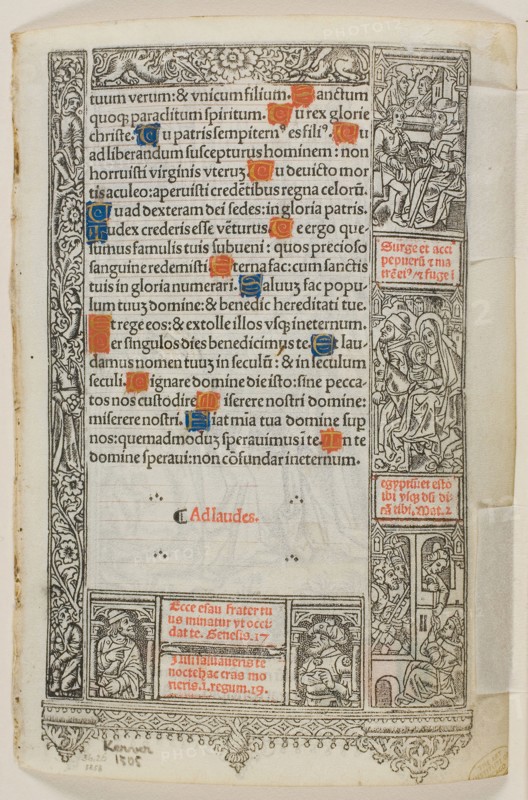 tuum verum: & vnicum filium. Sanctum
quoq; paraclitum spiritum. Tu rex glorie
christe. Tu patris sempitern⁹ es fili⁹. Tu
ad liberandum suscepturus hominem: non
horruisti virginis vteruꝫ. Tu deuicto mor
tis aculeo: aperuisti credētibus regna celorū.
Tu ad dexteram dei sedes: in gloria patris.
Iudex crederis esse vēturus. Te ergo que-
sumus famulis tuis subueni: quos precioso
sanguine redemisti. Eterna fac: cum sanctis
tuis in gloria numerari. Saluuꝫ fac popu-
lum tuuꝫ domine: & benedic hereditati tue.
Et rege eos: & extolle illos vsq; ineternum.
Per singulos dies benedicimus te. Et lau-
damus nomen tuuꝫ in seculū: & in seculum
seculi. Dignare domine die isto: sine pecca-
to nos custodire. Miserere nostri domine:
miserere nostri. Fiat mīa tua domine sup
nos: quemadmoduꝫ sperauimus ī te. In te
domine speraui: non cōfundar ineternum.
Ad laudes.
Surge et acci
pe puerū ⁊ ma
trē ei⁹ ⁊ fuge ī
egyptū: et esto
ibi vsq; dū di-
cā tibi. Mat. 2
Ecce esau frater tu
us minatur vt occi
dat te. Genesis. 17
Nisi saluaueris te
nocte hac cras mo
rieris. i. regum. 19.
Kerver
1505